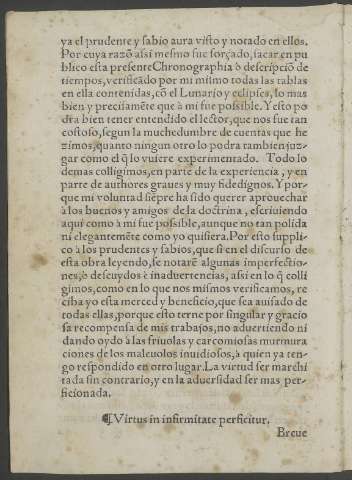 ya el prudente y sabio aura visto y notado en ellos.
Por cuya razō assi mesmo fue forçado, sacar en pu
blico esta presente Chronographia ò descripciō de
tiempos, verificādo por mi mismo todas las tablas
en ella contenidas, cō el Lunario y eclipses, lo mas
bien y precisamēte que à mi fue possible. Y esto po
dra bien tener entendido el lector, que nos fue tan
costoso, segun la muchedumbre de cuentas que he
zimos, quanto ningun otro lo podra tambien juz-
gar como el q̃ lo vuiere experimentado. Todo lo
demas colligimos, en parte de la experiencia, y en
parte de authores graues y muy fidedignos. Y por-
que mi voluntad siēpre ha sido querer aprouechar
à los buenos y amigos de la doctrina, escriuiendo
aqui como à mi fue possible, aunque no tan polida
ni elegantemēte como yo quisiera. Por esto suppli-
co à los prudentes y sabios, que si en el discurso de
esta obra leyendo, se notarē algunas imperfectio-
nes, ò descuydos è inaduertencias, assi en lo q̃ colli
gimos, como en lo que nos mismos verificamos, re
ciba yo esta merced y beneficio, que sea auisado de
todas ellas, porque esto terne por singular y gracio
sa recompensa de mis trabajos, no aduertiendo ni
dando oydo à las friuolas y carcomiosas murmura
ciones de los maleuolos inuidiosos, à quien ya ten-
go respondido en otro lugar. La virtud ser marchi
tada sin contrario, y en la aduersidad ser mas per-
ficionada.
¶Virtus in infirmitate perficitur.
Breue